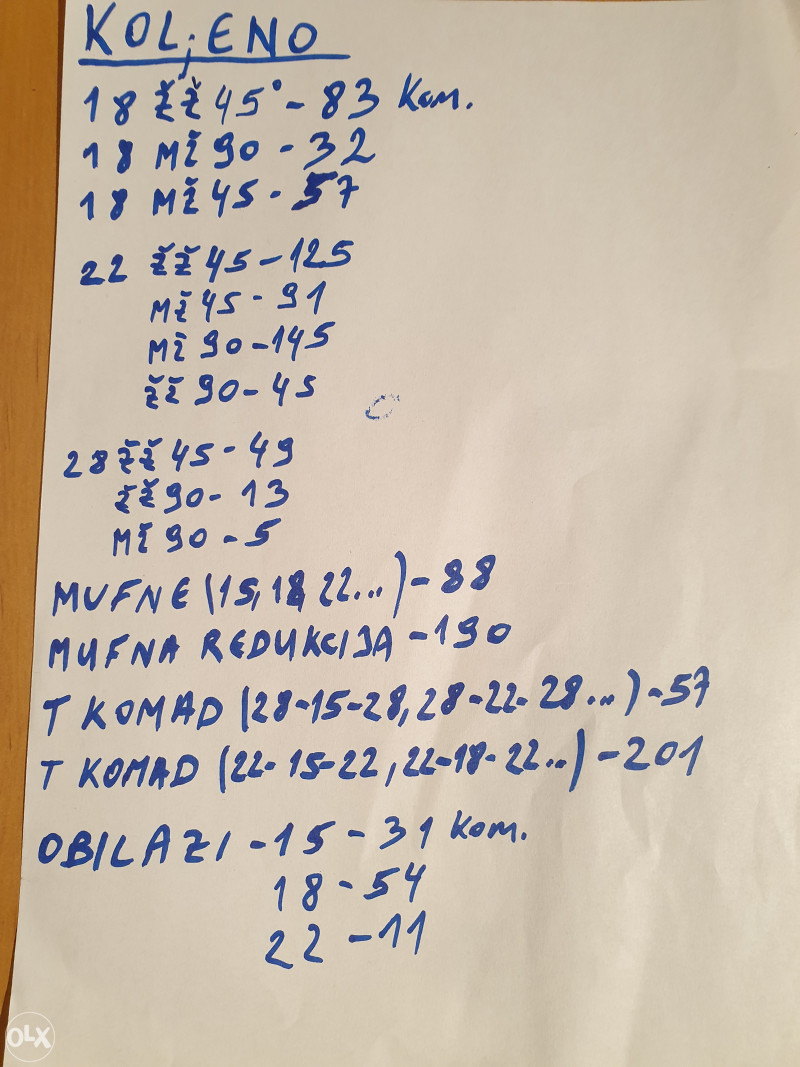 KOLJENO
18 ŽŽ 45° - 83 Kom.
18 MŽ 90 - 32
18 MŽ 45 - 57
22 ŽŽ 45 - 125
MŽ 45 - 91
MŽ 90 - 145
ŽŽ 90 - 45
28 ŽŽ 45 - 49
ŽŽ 90 - 13
MŽ 90 - 5
MUFNE (15, 18, 22...) - 88
MUFNA REDUKCIJA - 190
T KOMAD (28-15-28, 28-22-28...) - 57
T KOMAD (22-15-22, 22-18-22...) - 201
OBILAZI - 15 - 31 Kom.
18 - 54
22 - 11
OLX